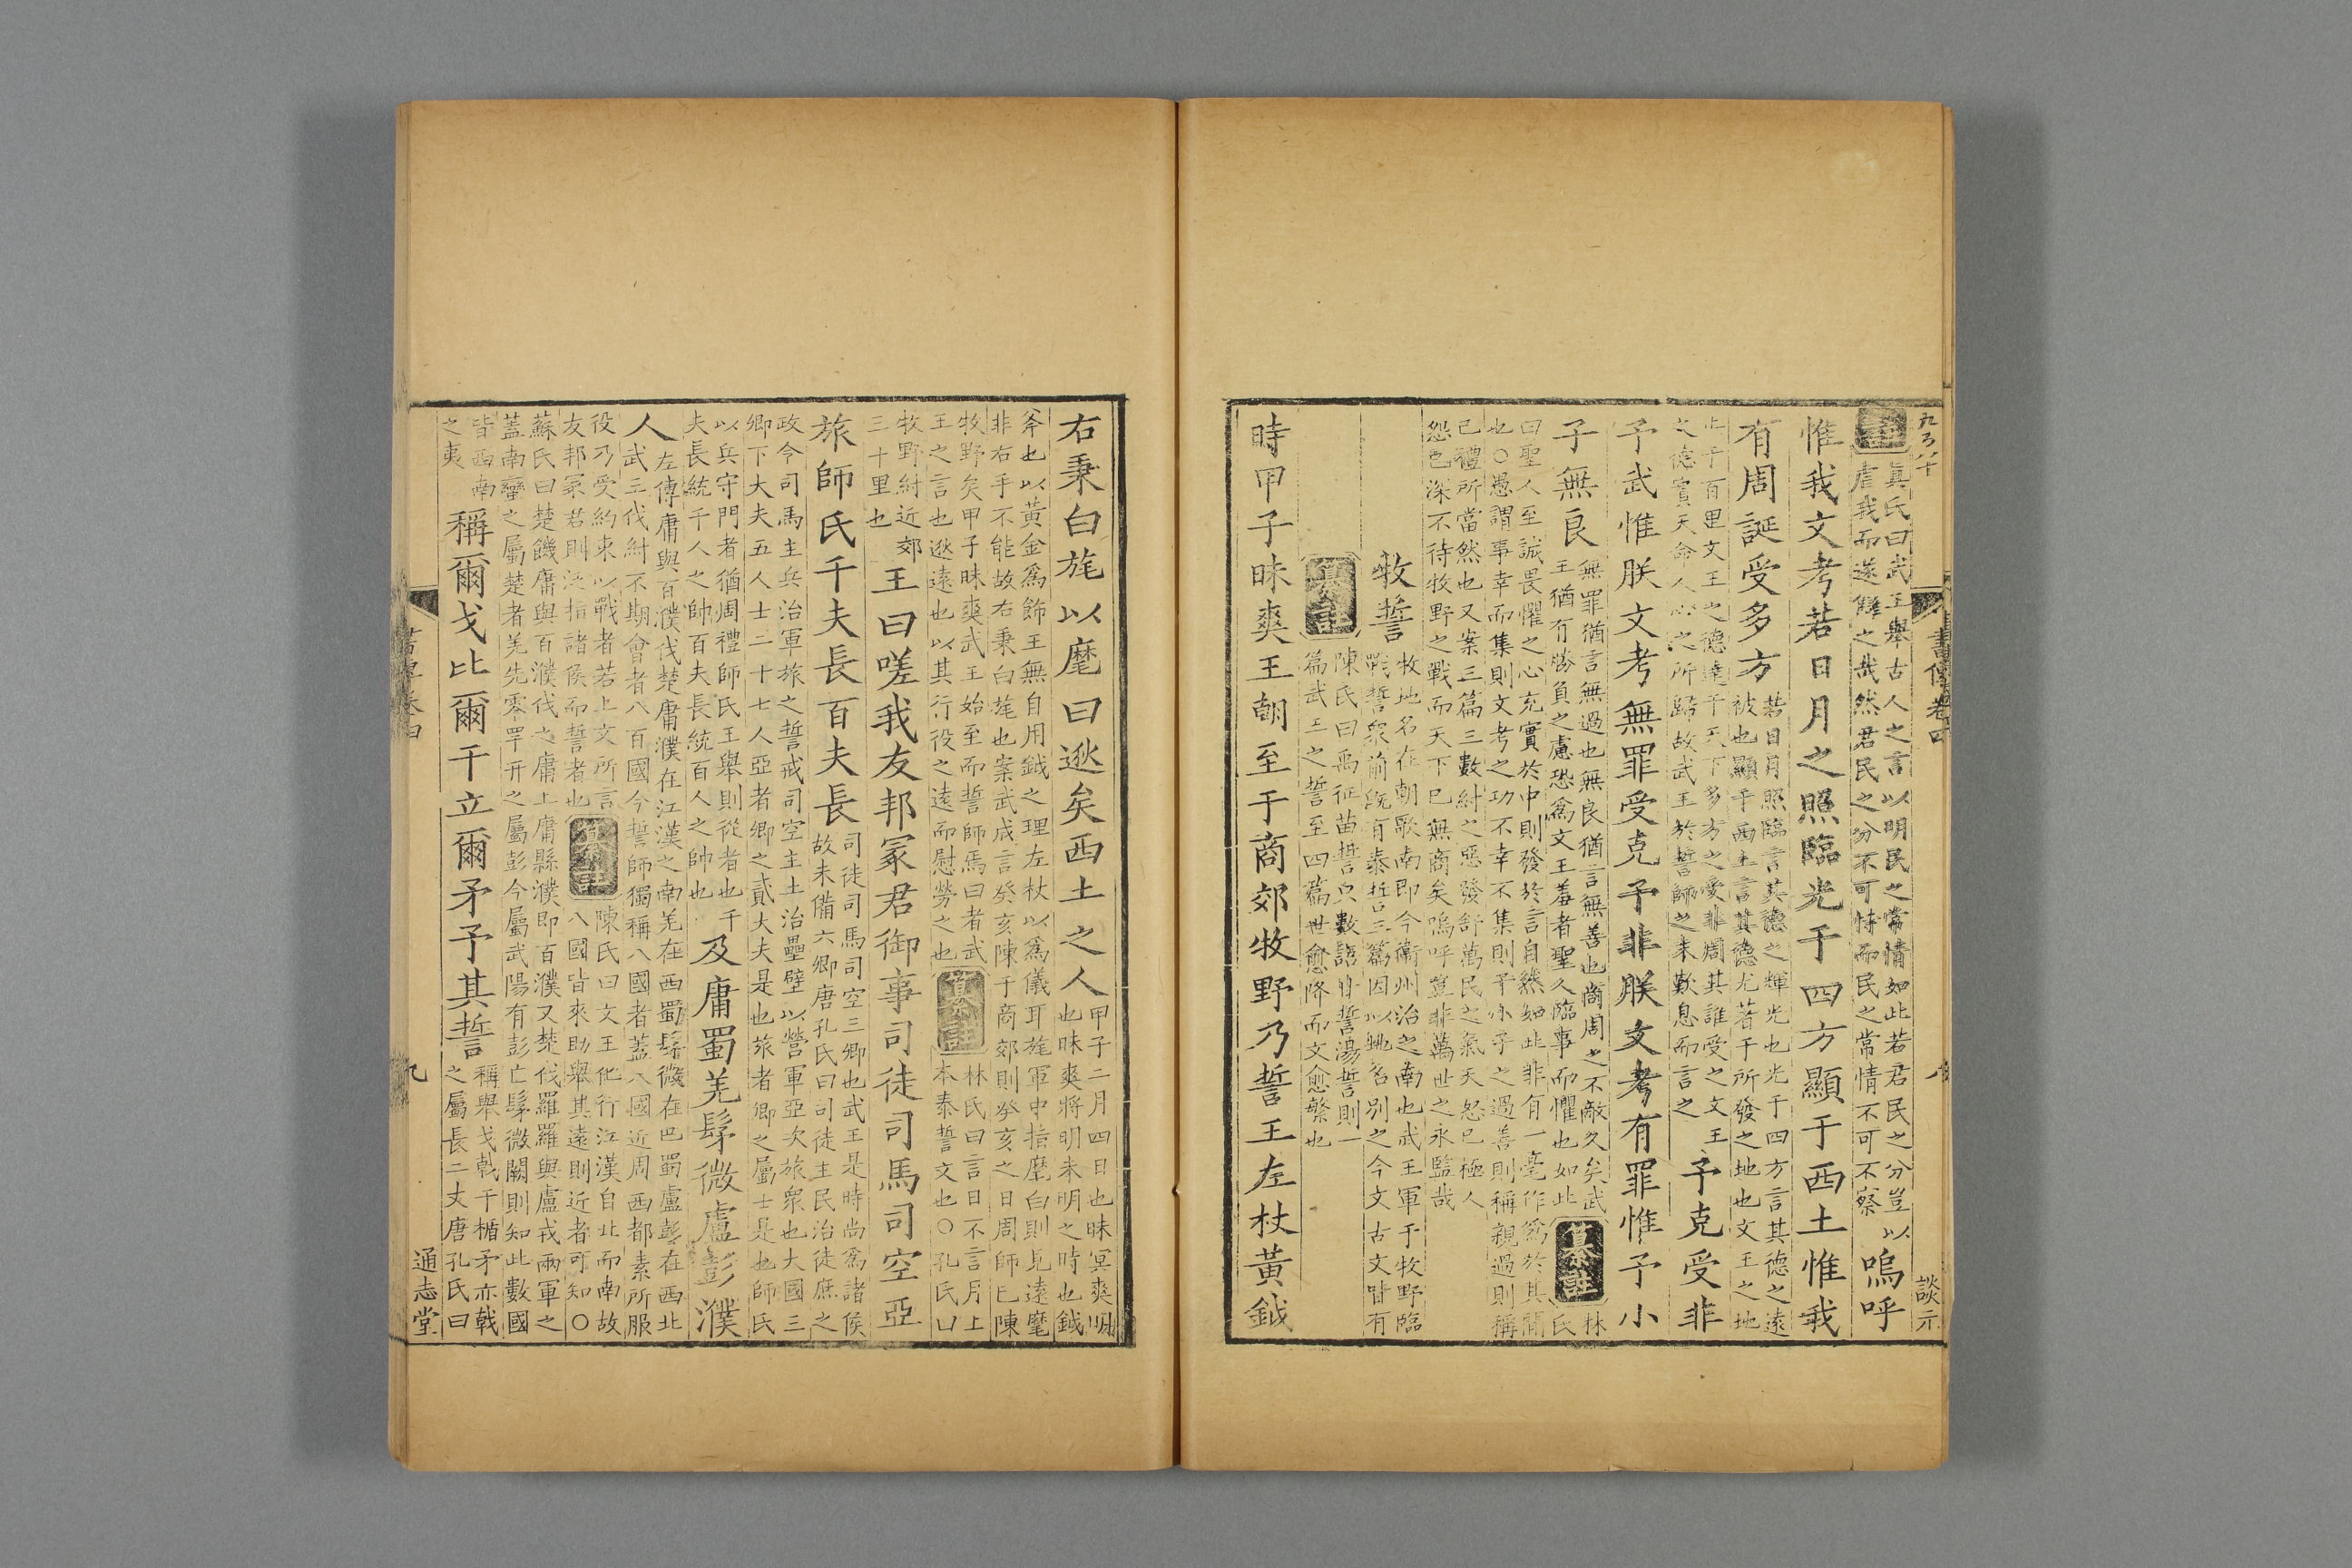 眞氏曰武王舉古人之言以明民之常情如此若君民之分豈以
虐我而遂讎之哉然君民之分不可恃而民之常情不可不察
嗚呼
惟我文考若日月之照臨光于四方顯于西土惟我
有周誕受多方
若日月照臨言其德之輝光也光于四方言其德之遠
被也顯于西土言其德尤著于所發之地也文王之地
止于百里文王之德達于天下多方之受非周其誰受之文王
之德實天命人心之所歸故武王於誓師之末歎息而言之
予克受非
予武惟朕文考無罪受克予非朕文考有罪惟予小
子無良
無罪猶言無過也無良猶言無善也商周之不敵久矣武
王猶有勝負之慮恐爲文王羞者聖人臨事而懼也如此
纂註
林
氏
曰聖人至誠畏懼之心充實於中則發於言自然如此非有一毫作爲於其間
也○愚謂事幸而集則文考之功不幸不集則予小子之過善則稱親過則稱
己禮所當然也又案三篇三數紂之惡發舒萬民之氣天怒已極人
怨已深不待牧野之戰而天下已無商矣嗚呼豈非萬世之永監哉
牧誓
牧地名在朝歌南即今衞州治之南也武王軍于牧野臨
戰誓衆前旣有泰誓三篇因以地名別之今文古文皆有
纂註
陳氏曰禹征苗誓只數語甘誓湯誓則一
篇武王之誓至四篇世愈降而文愈繁也
時甲子昧爽王朝至于商郊牧野乃誓王左杖黃鉞
書傳卷四
八
談元
右秉白旄以麾曰逖矣西土之人
甲子二月四日也昧冥爽明
也昧爽將明未明之時也鉞
斧也以黃金爲飾王無自用鉞之理左杖以爲儀耳旄軍中指麾白則見遠麾
非右手不能故右秉白旄也案武成言癸亥陳于商郊則癸亥之日周師已陳
牧野矣甲子昧爽武王始至而誓師焉曰者武
王之言也逖遠也以其行役之遠而慰勞之也
纂註
林氏曰言日不言月上
本泰誓文也○孔氏曰
牧野紂近郊
三十里也
王曰嗟我友邦冢君御事司徒司馬司空亞
旅師氏千夫長百夫長
司徒司馬司空三卿也武王是時尚爲諸侯
故未備六卿唐孔氏曰司徒主民治徒庶之
政令司馬主兵治軍旅之誓戒司空主土治壘壁以營軍亞次旅衆也大國三
卿下大夫五人士二十七人亞者卿之貳大夫是也旅者卿之屬士是也師氏
以兵守門者猶周禮師氏王舉則從者也千
夫長統千人之帥百夫長統百人之帥也
及庸蜀羌髳微盧彭濮
人
左傳庸與百濮伐楚庸濮在江漢之南羌在西蜀髳微在巴蜀盧彭在西北
武王伐紂不期會者八百國今誓師獨稱八國者蓋八國近周西都素所服
役乃受約束以戰者若上文所言
友邦冢君則泛指諸侯而誓者也
纂註
陳氏曰文王化行江漢自北而南故
八國皆來助舉其遠則近者可知○
蘇氏曰楚饑庸與百濮伐之庸上庸縣濮即百濮又楚伐羅羅與盧戎兩軍之
蓋南蠻之屬楚者羌先零罕开之屬彭今屬武陽有彭亡髳微闕則知此數國
皆西南
之夷
稱爾戈比爾干立爾矛予其誓
稱舉戈戟干楯矛亦戟
之屬長二丈唐孔氏曰
九
通志堂